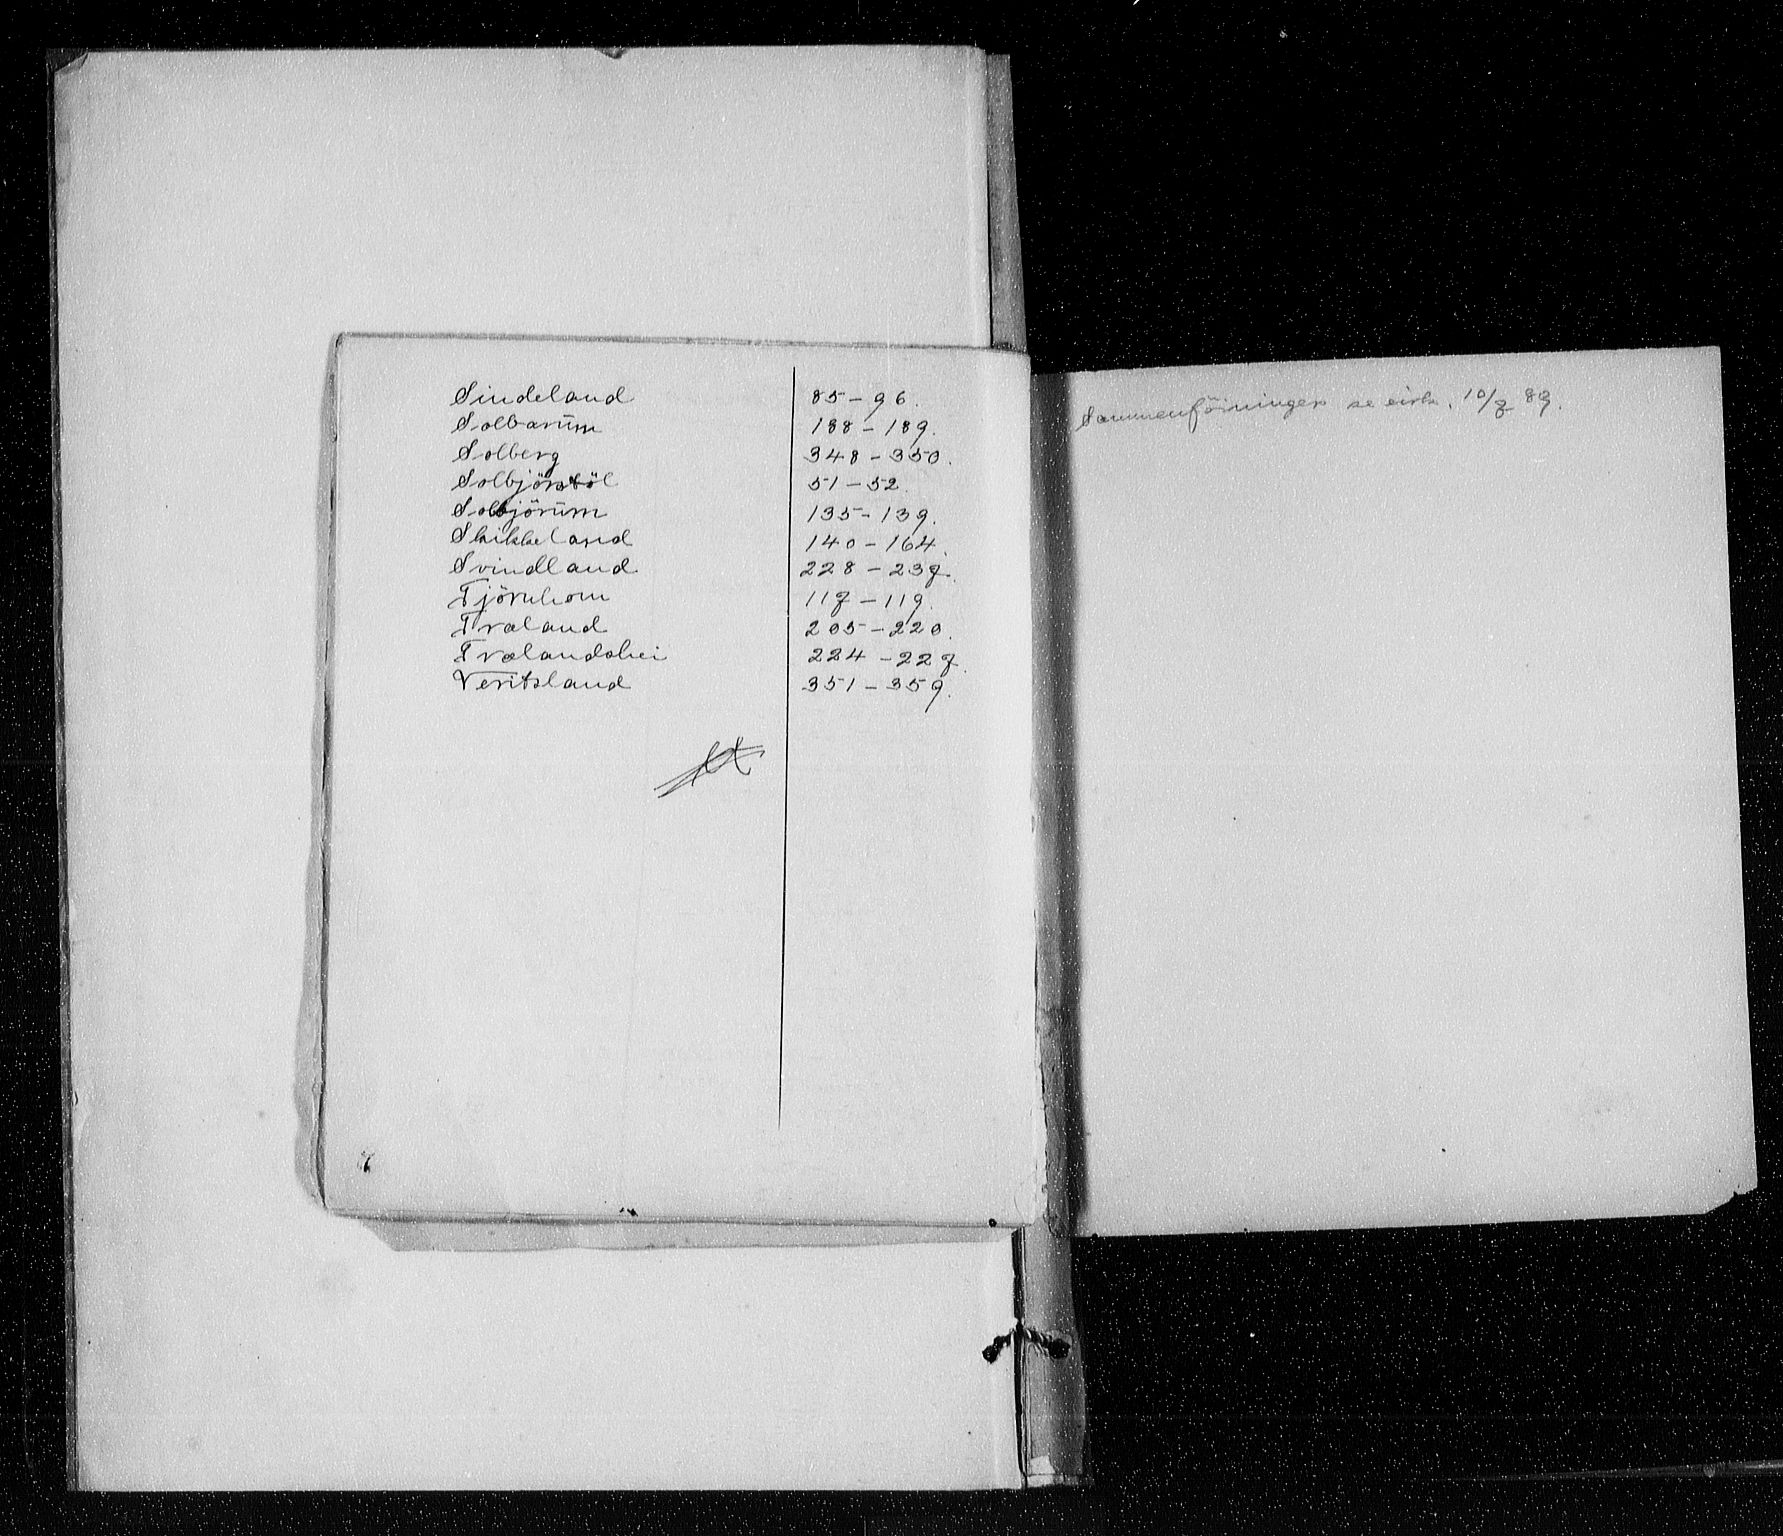 Sindeland 85 – 96.
Solbarūm 188 – 189.
Solberg 348 – 350.
Solbjörstöl 51 – 52.
Solbjörūm 135 – 139.
Stikkeland 140 – 164.
Svindland 228 – 237.
Tjörnhom 117 – 119.
Træland 205 – 220.
Trælandshei 224 – 227.
Veritsland 351 – 359.
Sammenföininger se cirk. 10/7 89.